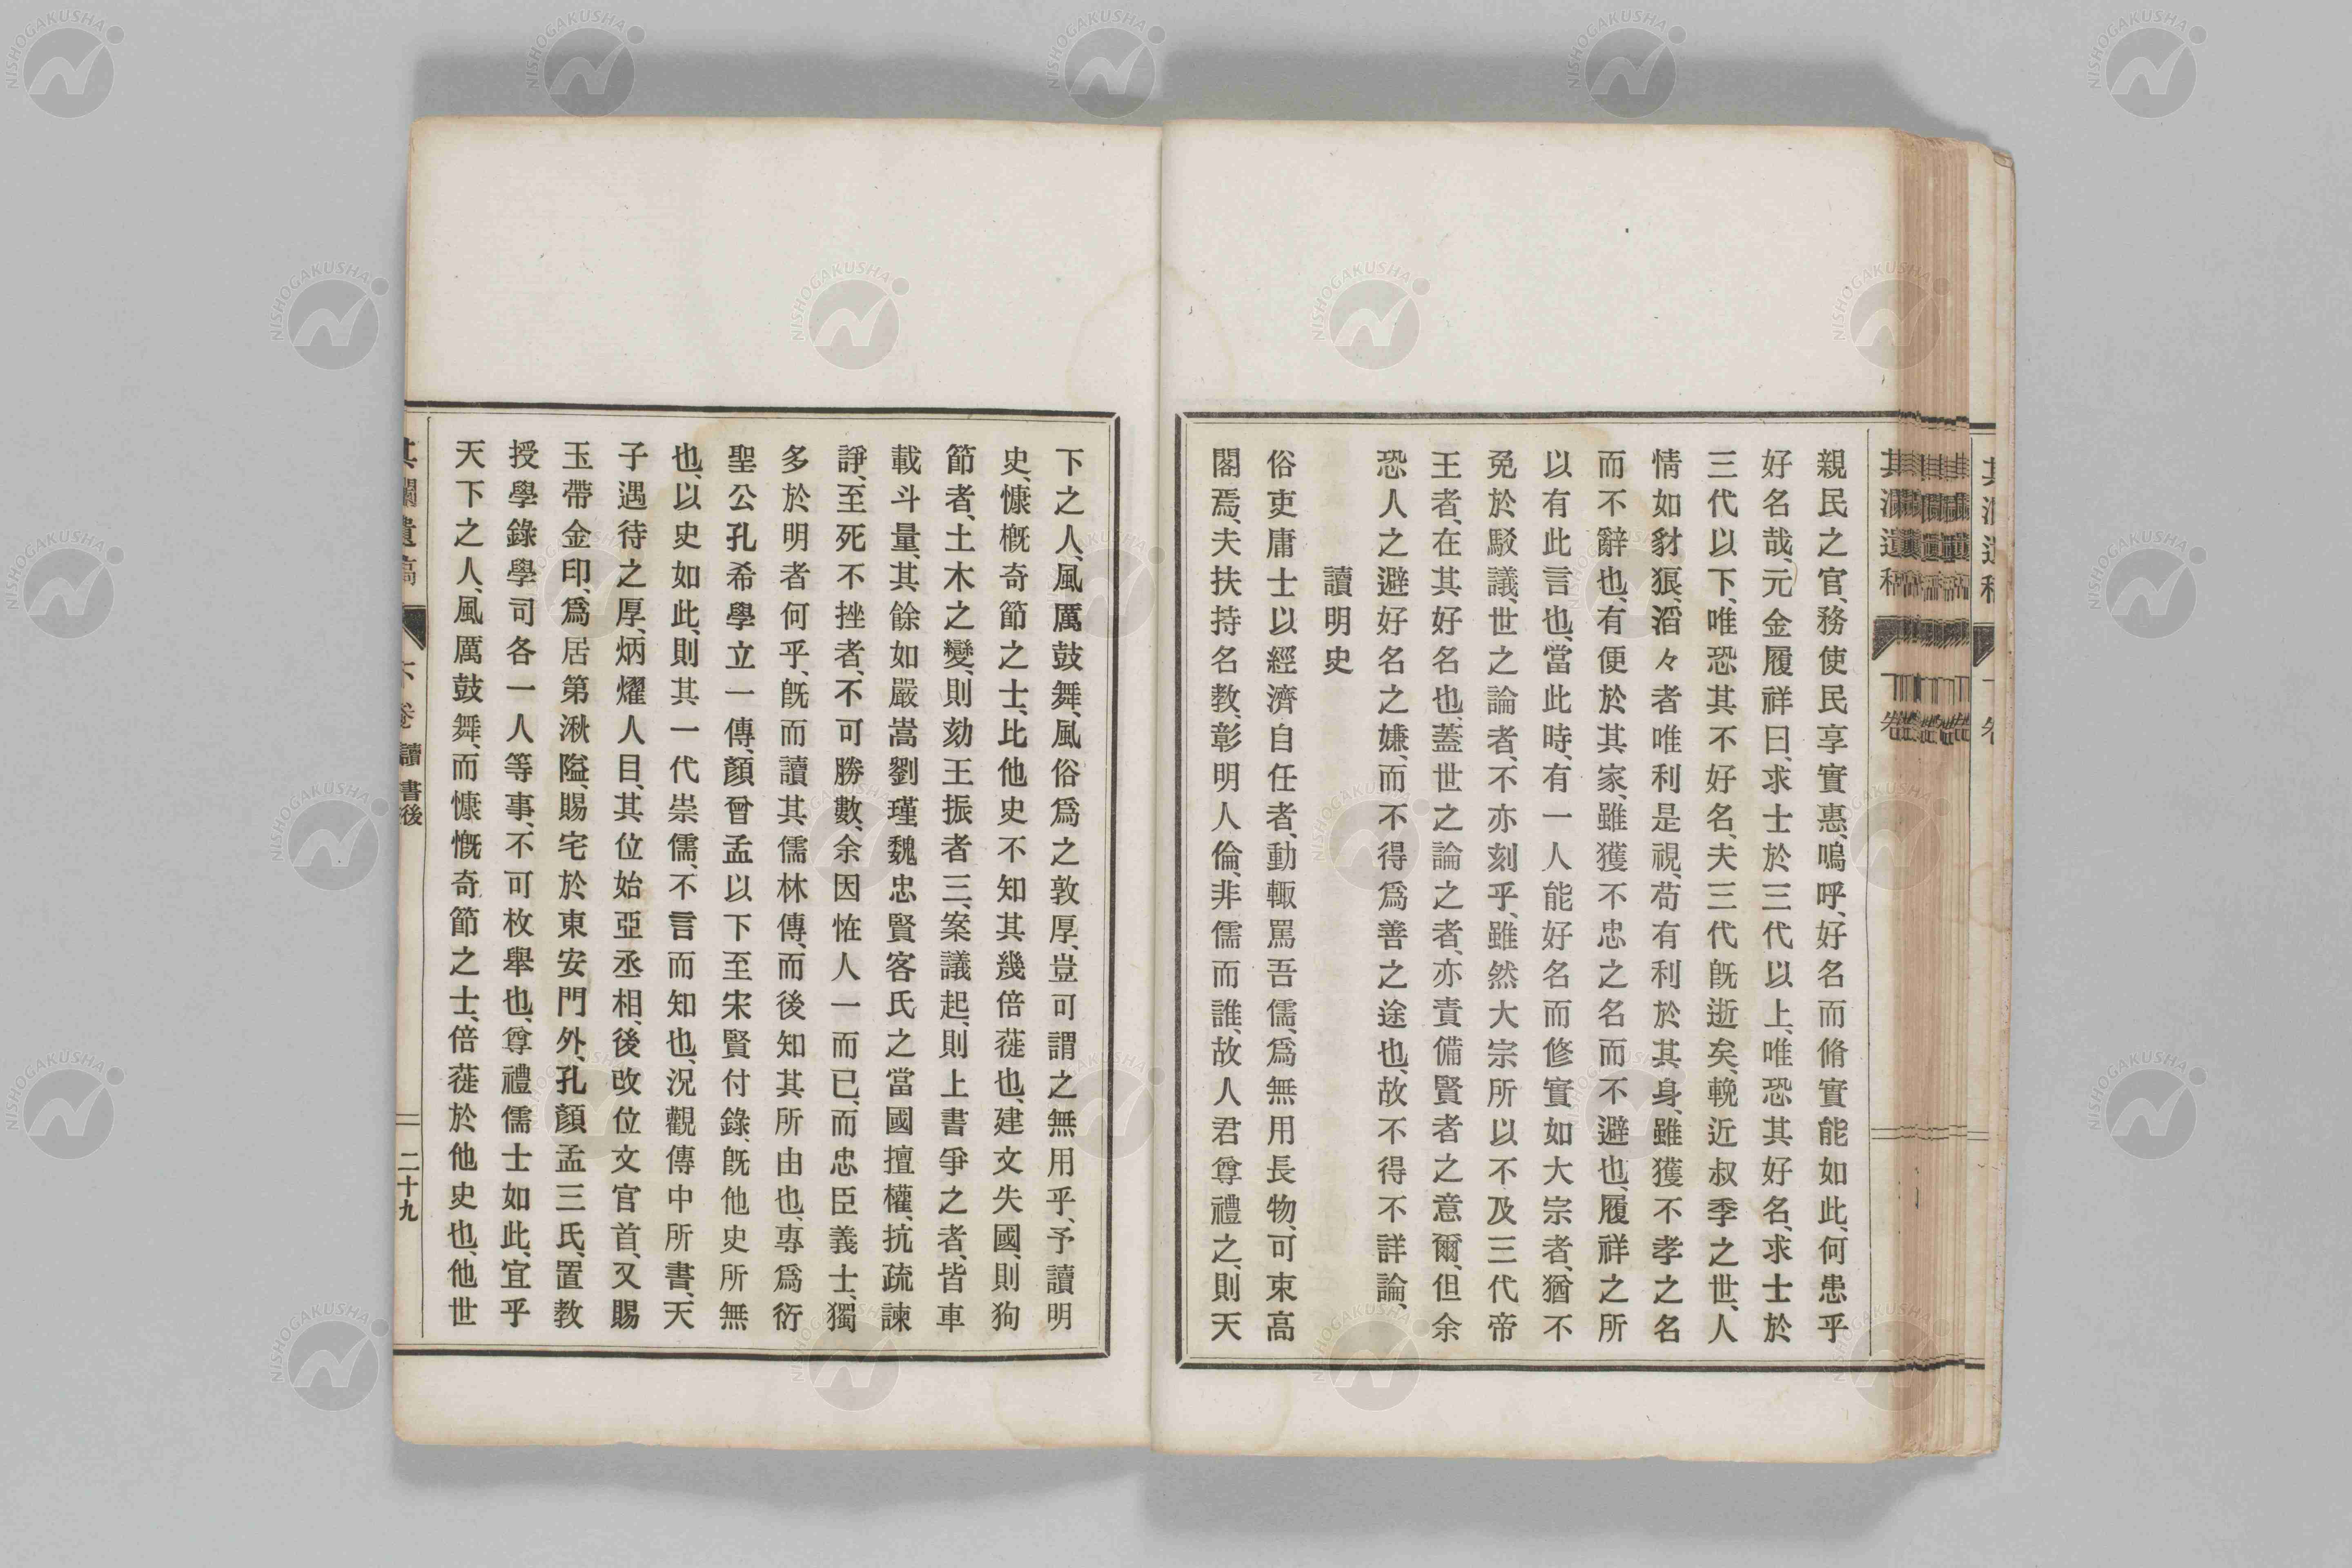 親民之官、務使民享實惠、嗚呼、好名而脩實能如此、何患乎
好名哉、元金履祥曰、求士於三代以上、唯恐其好名、求士於
三代以下、唯恐其不好名、夫三代既逝矣、輓近叔季之世、人
情如豺狼、滔々者唯利是視、苟有利於其身、雖獲不孝之名
而不辭也、有便於其家、雖獲不忠之名而不避也、履祥之所
以有此言也、當此時、有一人能好名而修實如大宗者、猶不
免於駁議、世之論者、不亦刻乎、雖然大宗所以不及三代帝
王者、在其好名也、蓋世之論之者、亦責備賢者之意爾、但余
恐人之避好名之嫌、而不得爲善之途也、故不得不詳論、
讀明史
俗吏庸士以經濟自任者、動輙罵吾儒、爲無用長物、可束高
閣焉、夫扶持名教、彰明人倫、非儒而誰、故人君尊禮之、則天
下之人、風厲鼓舞、風俗爲之敦厚、豈可謂之無用乎、予讀明
史、慷概奇節之士、比他史不知其幾倍蓰也、建文失國、則狗
節者、土木之變、則劾王振者三、案議起、則上書爭之者、皆車
載斗量、其餘如嚴嵩劉瑾魏忠賢客氏之當國擅權、抗疏諫
諍、至死不挫者、不可勝數、余因恠人一而已、而忠臣義士、獨
多於明者何乎、既而讀其儒林傳、而後知其所由也、專爲衍
聖公孔希學立一傳、顏曾孟以下至宋賢付錄、既他史所無
也、以史如此、則其一代崇儒、不言而知也、況觀傳中所書、天
子遇待之厚、炳燿人目、其位始亞丞相、後改位文官首、又賜
玉帶金印、爲居第湫隘、賜宅於東安門外、孔顏孟三氏、置教
授學錄學司各一人等事、不可枚舉也、尊禮儒士如此、宜乎
天下之人、風厲鼓舞、而慷慨奇節之士、倍蓰於他史也、他世
讀書後
二十九
NISHOGAKUSHA